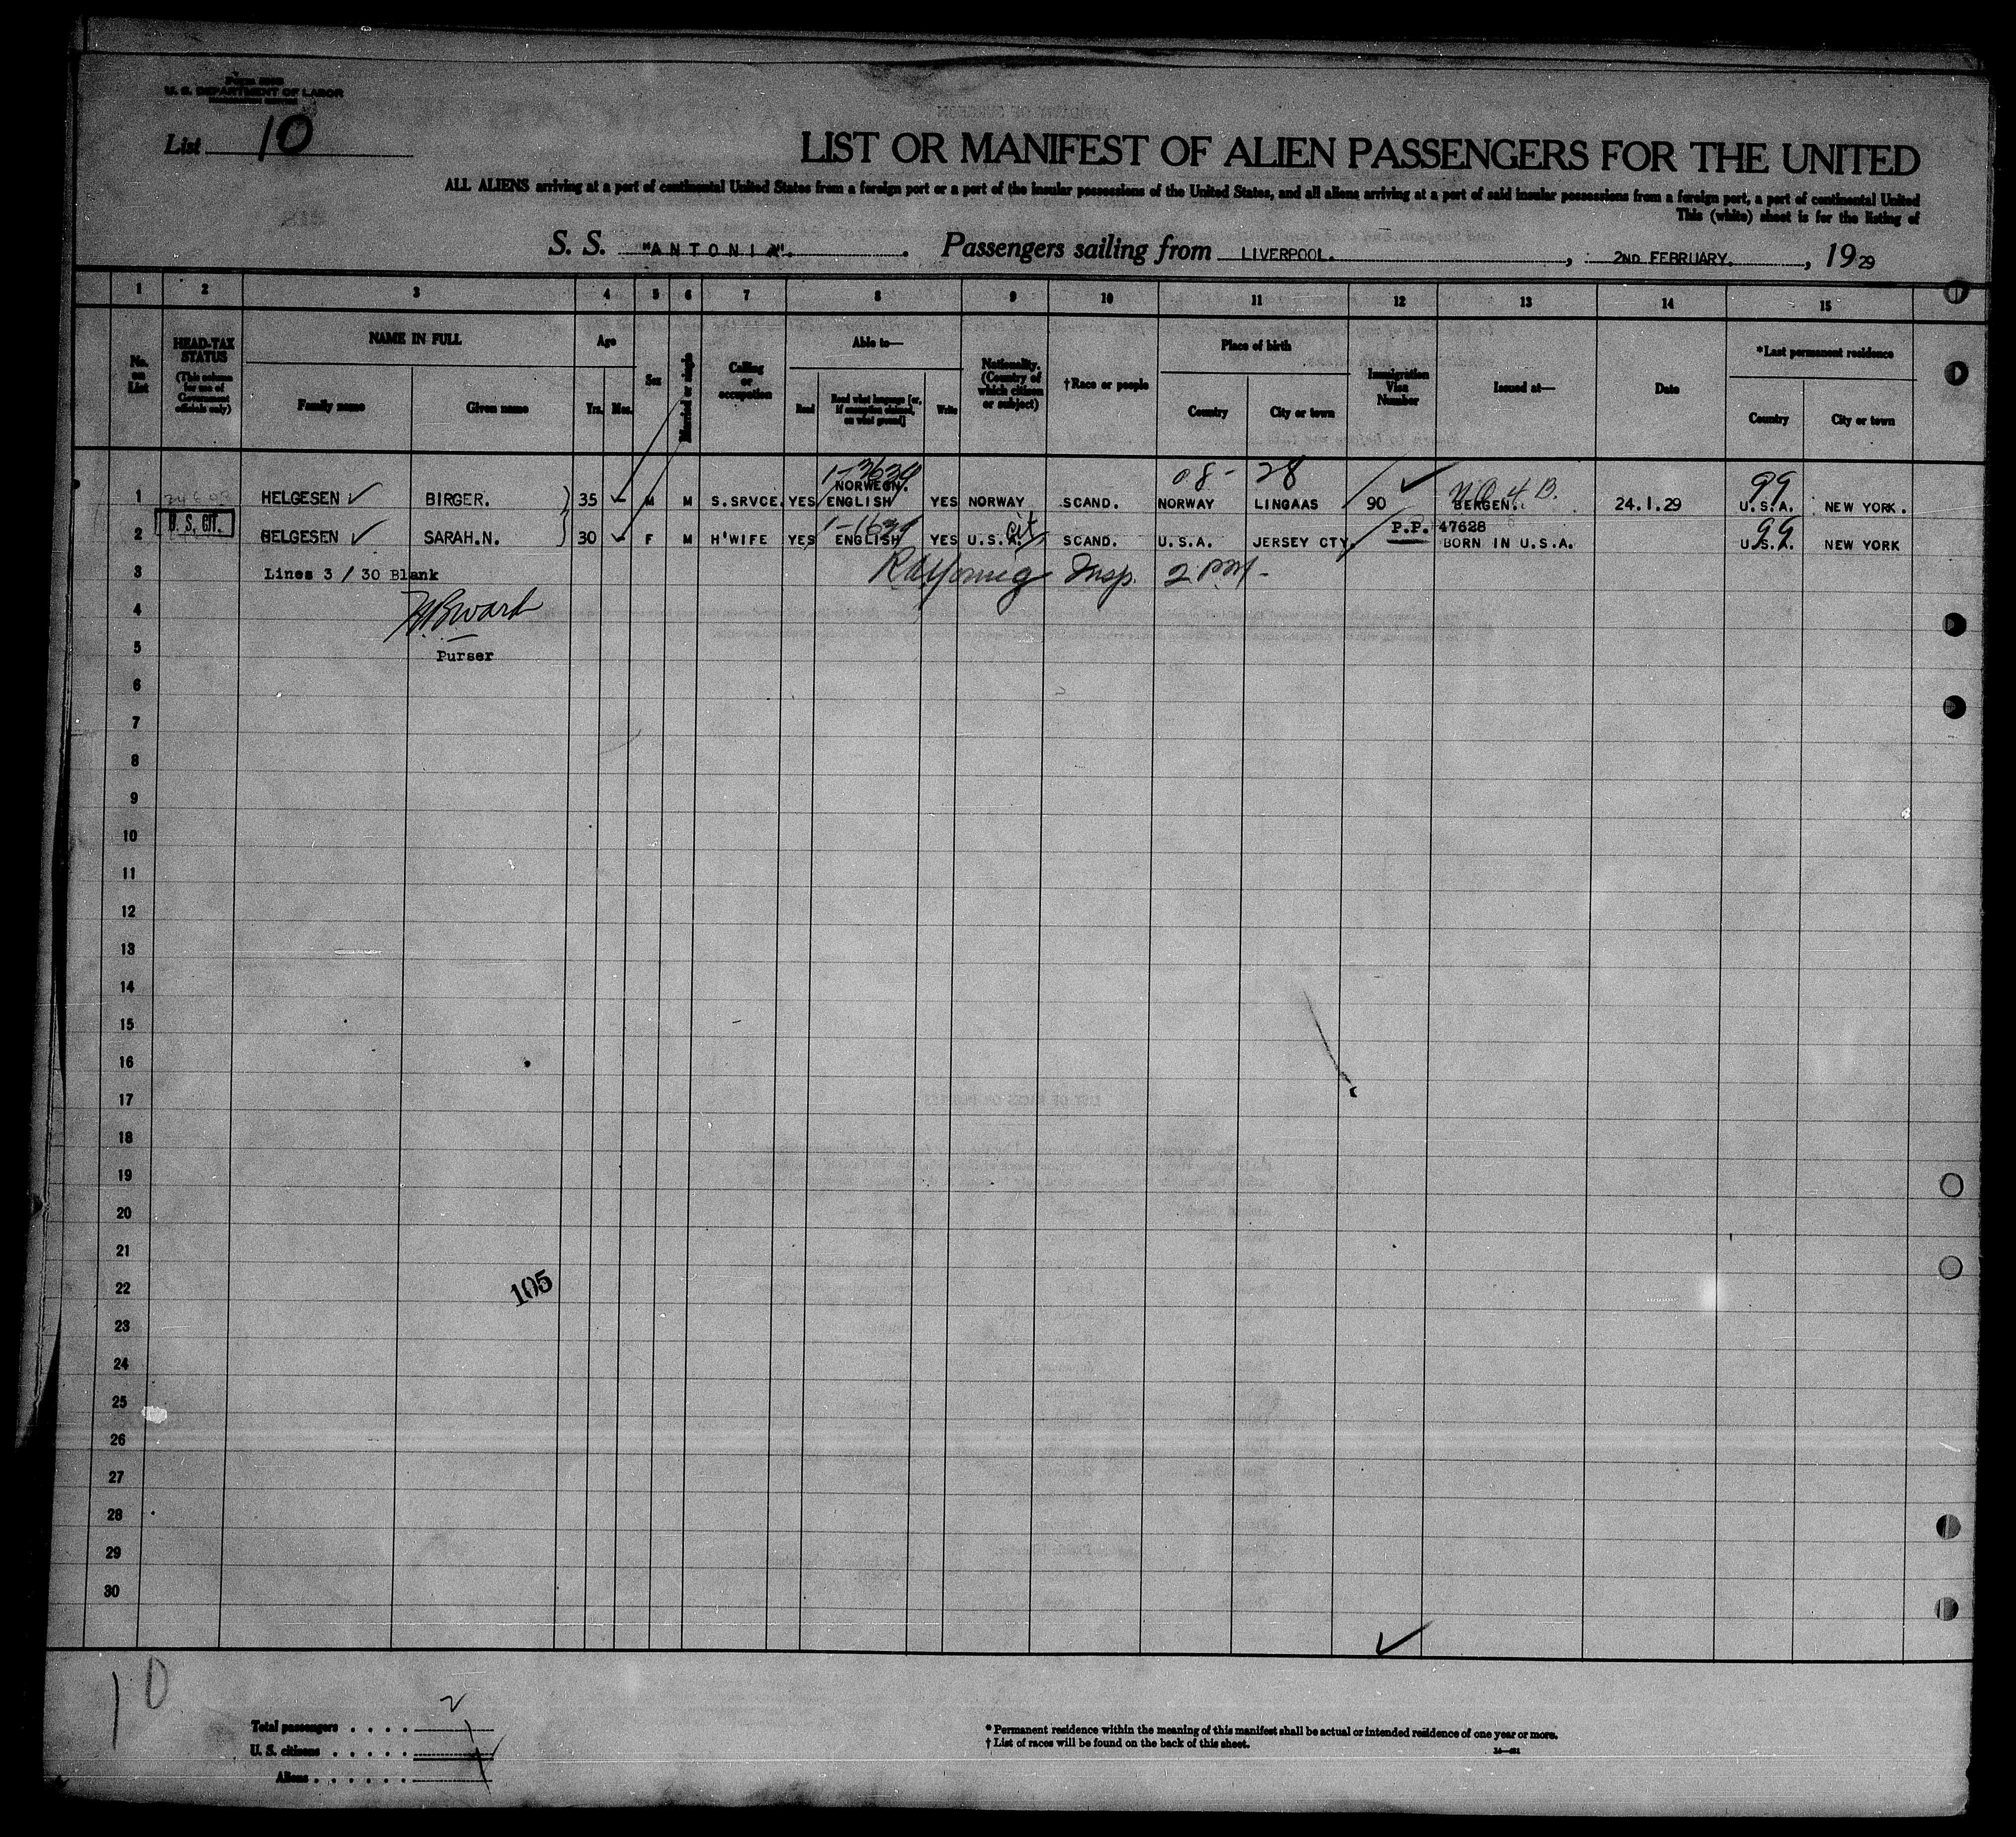 U. S. DEPARTMENT OF LABOR
List 10
LIST OR MANIFEST OF ALIEN PASSENGERS FOR THE UNITED
ALL ALIENS arriving at a port of continental United States from a foreign port or a port of the insular possessions of the United States, and all aliens arriving at a port of said insular possessions from a foreign port, a port of continental United
This (white) sheet is for the listing of
S. S. "ANTONIA". Passengers sailing from LIVERPOOL. , 2ND FEBRUARY. , 1929
1 2 3 4 5 6 7 8 9 10 11 12 13 14 15
No. on List
HEAD-TAX STATUS (This column for use of Government officials only)
NAME IN FULL
Family name Given name
Age
Yrs. Mos.
Sex
Married or single
Calling or occupation
Able to—
Read Read what language [or, if exemption claimed, on what ground] Write
Nationality. (Country of which citizen or subject)
†Race or people
Place of birth
Country City or town
Immigration Visa Number
Issued at—
Date
*Last permanent residence
Country City or town
08 - 28 99
1 HELGESEN ✓ BIRGER. 35 ✓ M M S.SRVCE. YES NORWEGN. ENGLISH YES NORWAY SCAND. NORWAY LINGAAS 90 ✓ BERGEN. 24.1.29 U.S.A. NEW YORK.
U. S. CIT.
2 HELGESEN ✓ SARAH.N. 30 ✓ F M H'WIFE YES ENGLISH YES U.S.A. Cit SCAND. U.S.A. JERSEY CTY. P.P. 47628 BORN IN U.S.A. 99 U.S.A. NEW YORK
3 Lines 3 / 30 Blank Insp. 2 PM -
4
5 Purser
6
7
8
9
10
11
12
13
14
15
16
17
18
19
20
21
22 105
23
24
25
26
27
28
29
30
✓
10
Total passengers . . . . 2
U. S. citizens . . . . .
Aliens . . . . . .
* Permanent residence within the meaning of this manifest shall be actual or intended residence of one year or more.
† List of races will be found on the back of this sheet.